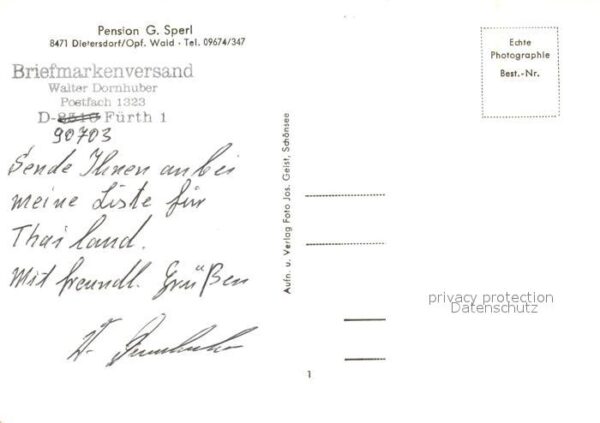 Pension G. Sperl
8471 Dietersdorf/Opf. Wald - Tel. 09674/347
Briefmarkenversand
Walter Dornhuber
Postfach 1323
D-8510 Fürth 1
90703
Sende Ihnen anbei
meine Liste für
Thailand.
Mit freundl. Grüßen
W. Dornhuber
Aufn. u. Verlag Foto Jos. Geist, Schönsee
Echte
Photographie
Best.-Nr.
privacy protection
Datenschutz
1